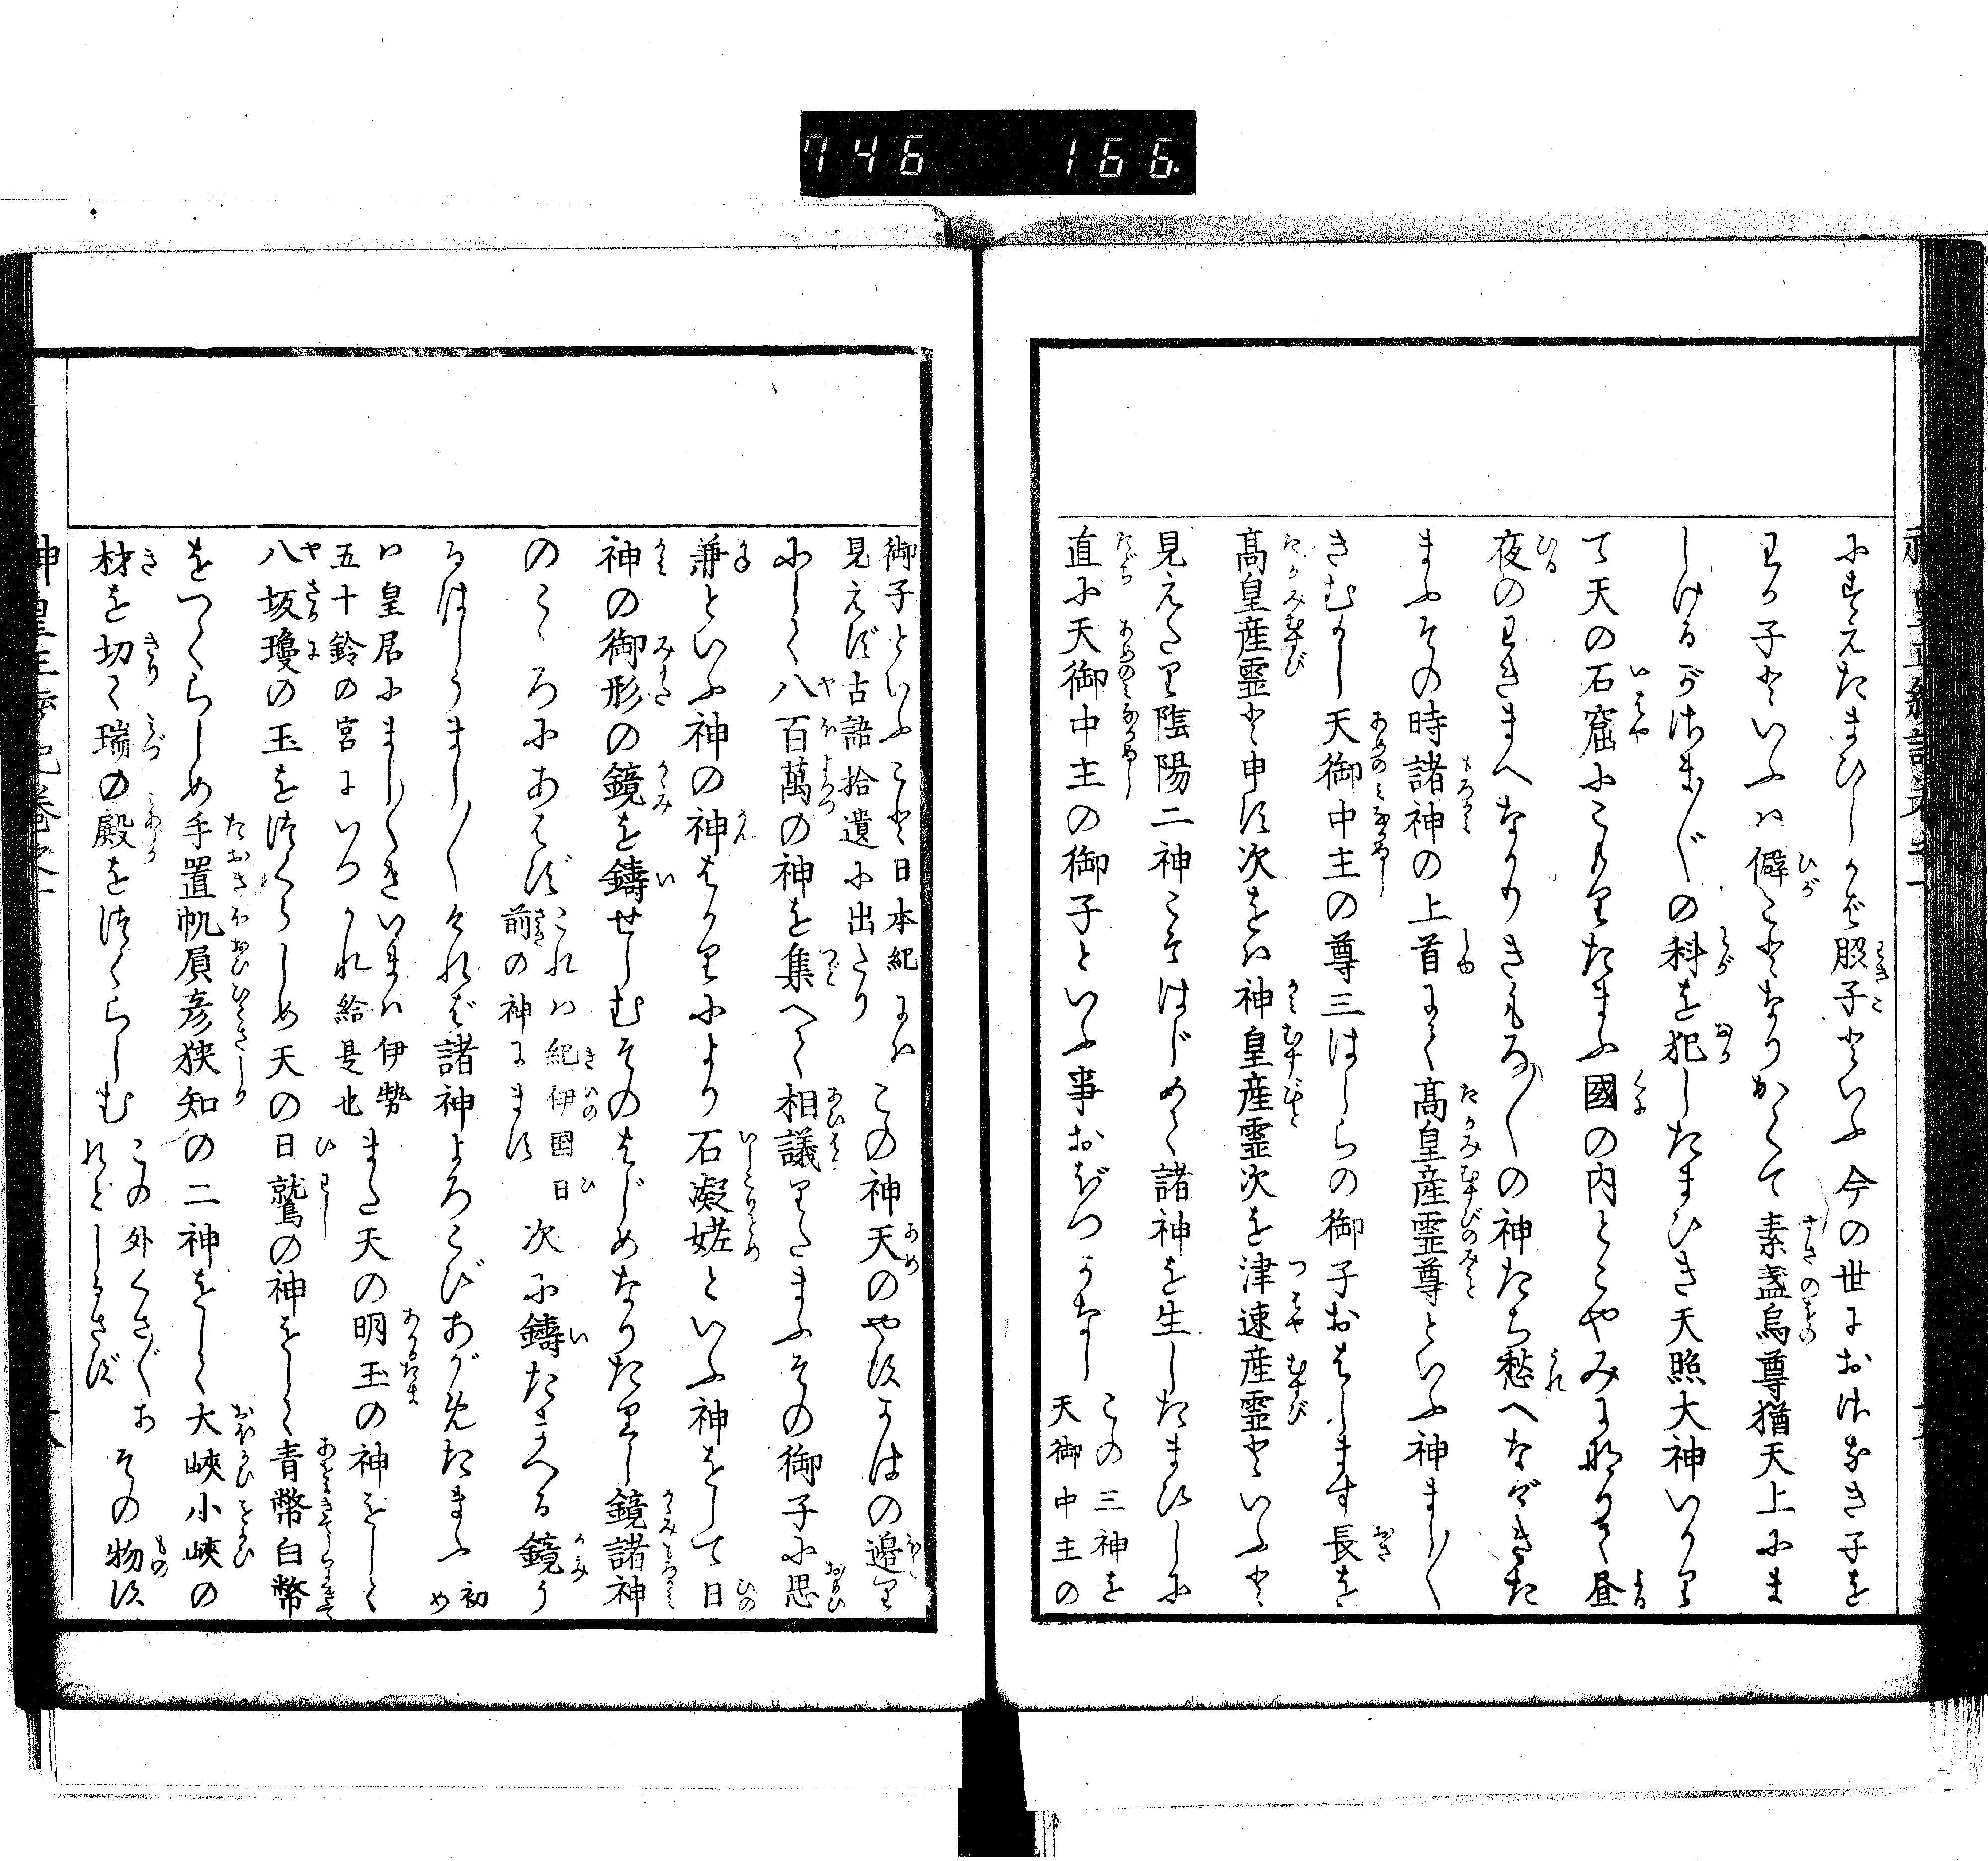 746 166.
にすゑたまひしかば腋子といふ今の世におさなき子を
わか子といふは僻ことなりかくて素盞烏尊猶天上にま
しけるがさま〴〵の科を犯したまひき天照大神いかり
て天の石窟にこもりたまふ國の内とこやみになりて昼
夜のわきまへなかりきもろ〳〵の神たち愁へなげきた
まふその時諸神の上首にて高皇産霊尊といふ神まし〳〵
きむかし天御中主の尊三はしらの御子おはします長を
高皇産霊と申す次をは神皇産霊次を津速産霊といふと
見えたり陰陽二神こそはじめて諸神を生したまひしに
直に天御中主の御子といふ事おぼつかなし この三神を
天御中主の
御子といふこと日本紀には
見えず古語拾遺に出たり この神天のやすかはの邉り
にして八百萬の神を集へて相議りたまふその御子に思
兼といふ神の神はかりにより石凝姥といふ神をして日
神の御形の鏡を鑄せしむそのはじめなりたりし鏡諸神
のこゝろにあはず これは紀伊國日
前の神にます 次に鑄たまへる鏡う
るはしうまし〳〵ければ諸神よろこびあがめたまふ 初め
は皇居にまし〳〵きいまは伊勢
五十鈴の宮にいつかれ給是也 また天の明玉の神をして
八坂瓊の玉をつくらしめ天の日鷲の神をして青幣白幣
をつくらしめ手置帆屓彦狹知の二神をして大峽小峽の
材を切て瑞の殿をつくらしむ この外くさ〴〵あ
れどしるさず その物す